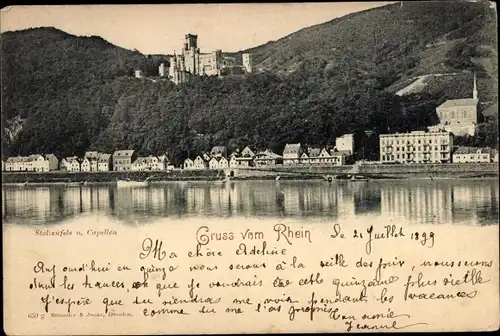 Stolzenfels u. Capellen
Gruss vom Rhein.
le 21 Juillet 1899
Ma chère Adeline
Auj ourd'hui en quinze nous serons à la veille des prix, nous serons
dans les heures que je voudrais être cette quinzaine plus vieille
J'espère que tu viendras me voir pendant les vacances
comme tu me l'as promis
Ton amie
Jeanne
650 g Dresden.